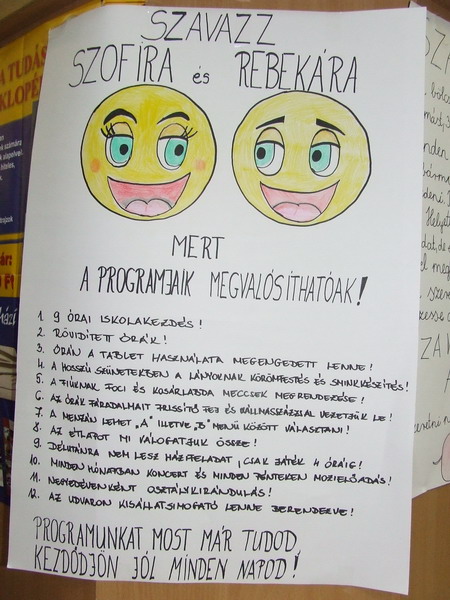 SZAVAZZ
SZOFIRA és REBEKÁRA
MERT
A PROGRAMJAIK MEGVALÓSÍTHATÓAK!
1. 9 ÓRAI ISKOLAKEZDÉS!
2. RÖVIDÍTETT ÓRÁK!
3. ÓRÁN A TABLET HASZNÁLATA MEGENGEDETT LENNE!
4. A HOSSZÚ SZÜNETEKBEN A LÁNYOKNAK KÖRÖMFESTÉS ÉS SMINKKÉSZÍTÉS!
5. A FIÚKNAK FOCI ÉS KOSÁRLABDA MECCSEK MEGRENDEZÉSE!
6. AZ ÓRÁK FÁRADALMAIT FRISSÍTŐ FEJ ÉS VÁLLMASSZÁZZSAL VEZETJÜK LE!
7. A MENZÁN LEHET „A" ILLETVE „B" MENÜ KÖZÖTT VÁLASZTANI!
8. AZ ÉTLAPOT MI VÁLOGATJUK ÖSSZE!
9. DÉLUTÁNRA NEM LESZ HÁZIFELADAT, CSAK JÁTÉK 4 ÓRÁIG!
10. MINDEN HÓNAPBAN KONCERT ÉS MINDEN PÉNTEKEN MOZIELŐADÁS!
11. NEGYEDÉVENKÉNT OSZTÁLYKIRÁNDULÁS!
12. AZ UDVARON KISÁLLATSIMOGATÓ LENNE BERENDEZVE!
PROGRAMUNKAT MOST MÁR TUDOD,
KEZDŐDJÖN JÓL MINDEN NAPOD!
A TUDÁS